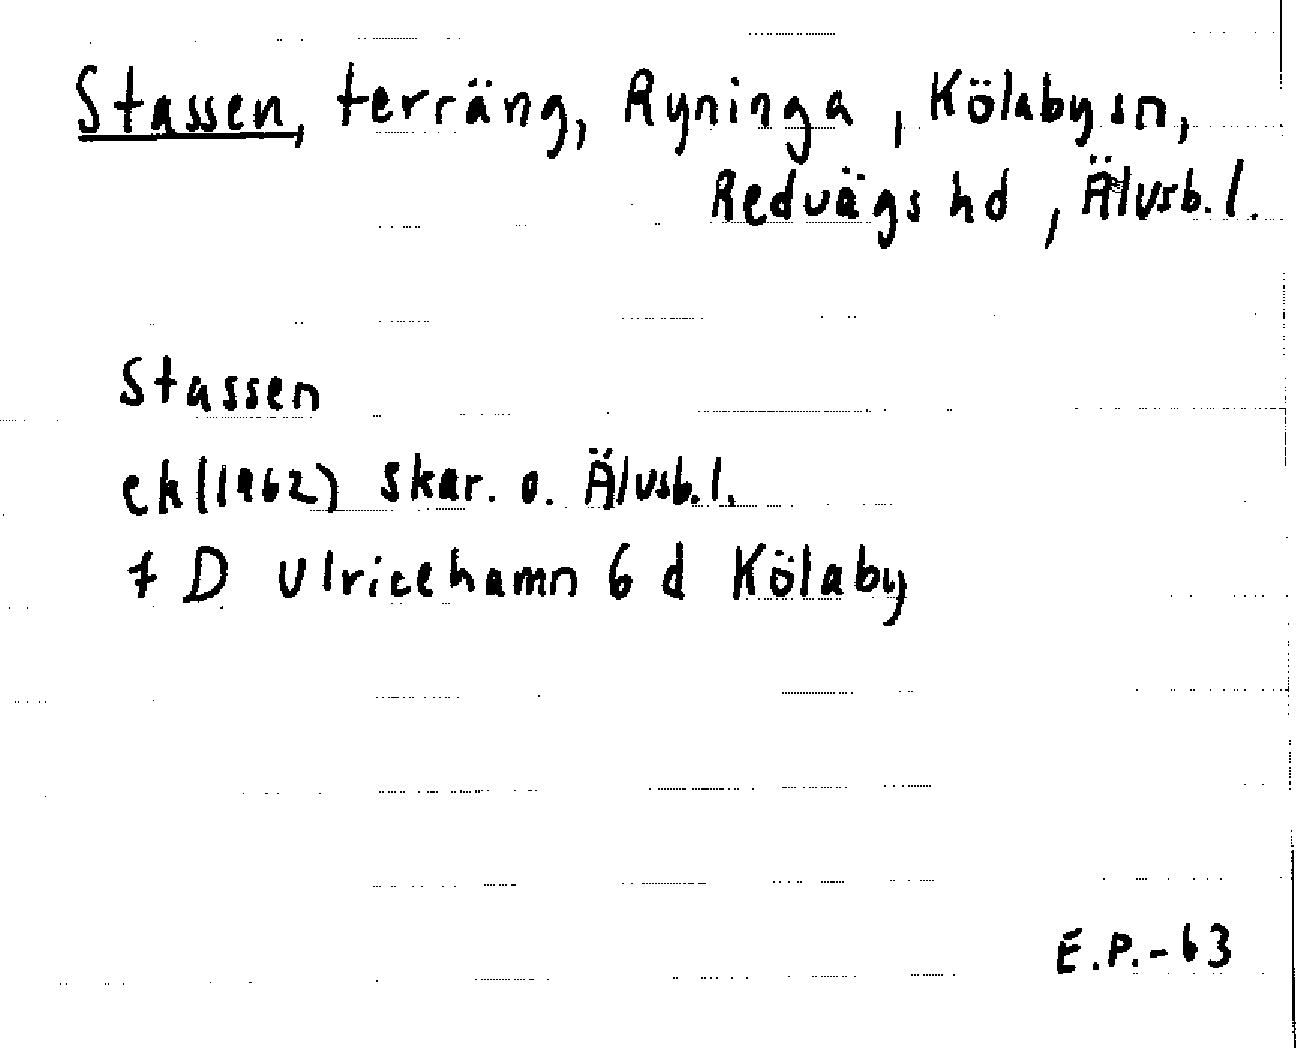 Stassen, terräng, Ryninga, Kölaby sn,
Redvägs hd, Älvsb. l.
Stassen
ek (1962) Skar. o. Älvsb. l.
7 D Ulricehamn 6 d Kölaby
E.P.-63